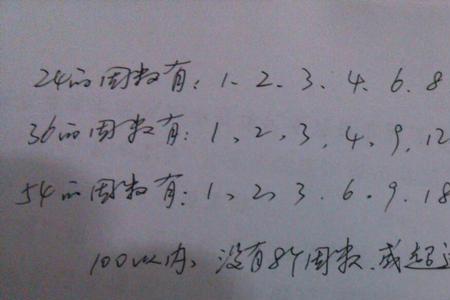 24的因数有：1、2、3、4、6、8
36的因数有：1、2、3、4、9、12
54的因数有：1、2、3、6、9、18
100以内，没有8个因数，或超过